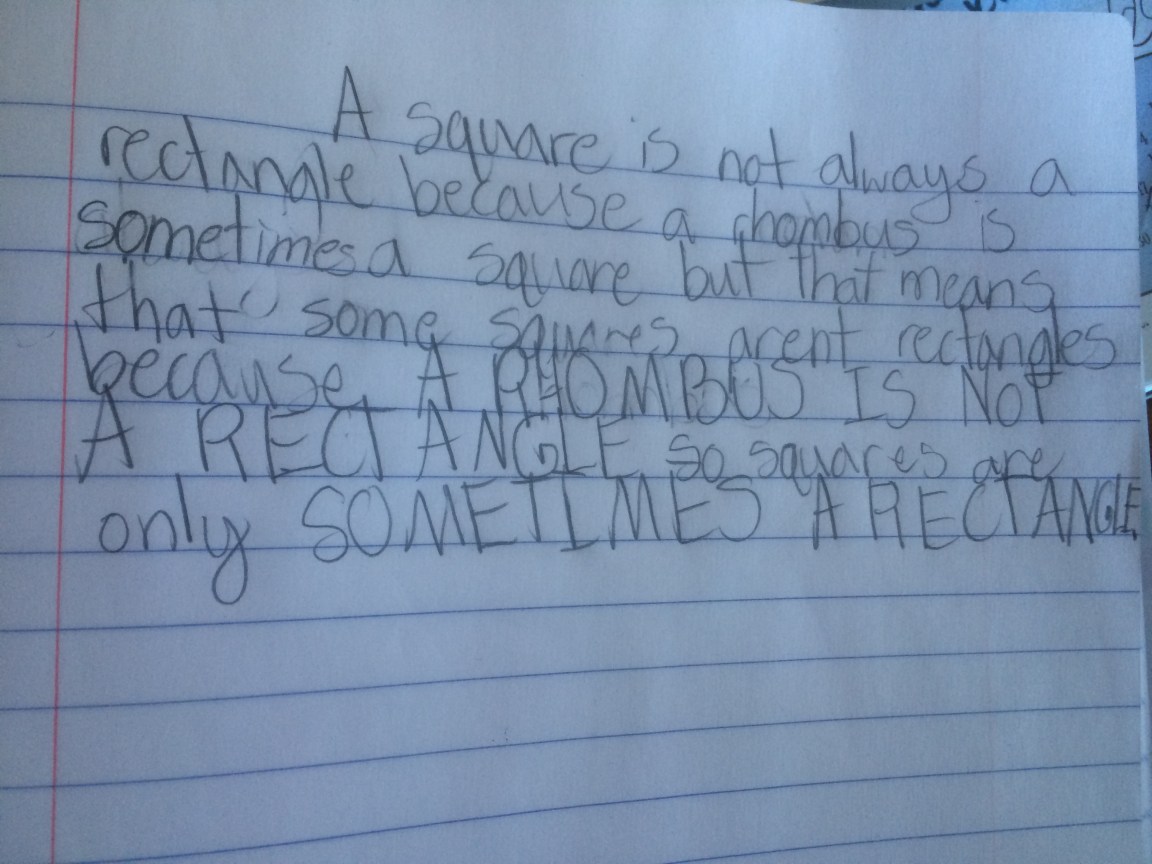 A square is not always a
rectangle because a rhombus is
sometimes a square but that means
that some squares arent rectangles
because A RHOMBUS IS NOT
A RECTANGLE so squares are
only SOMETIMES A RECTANGLE